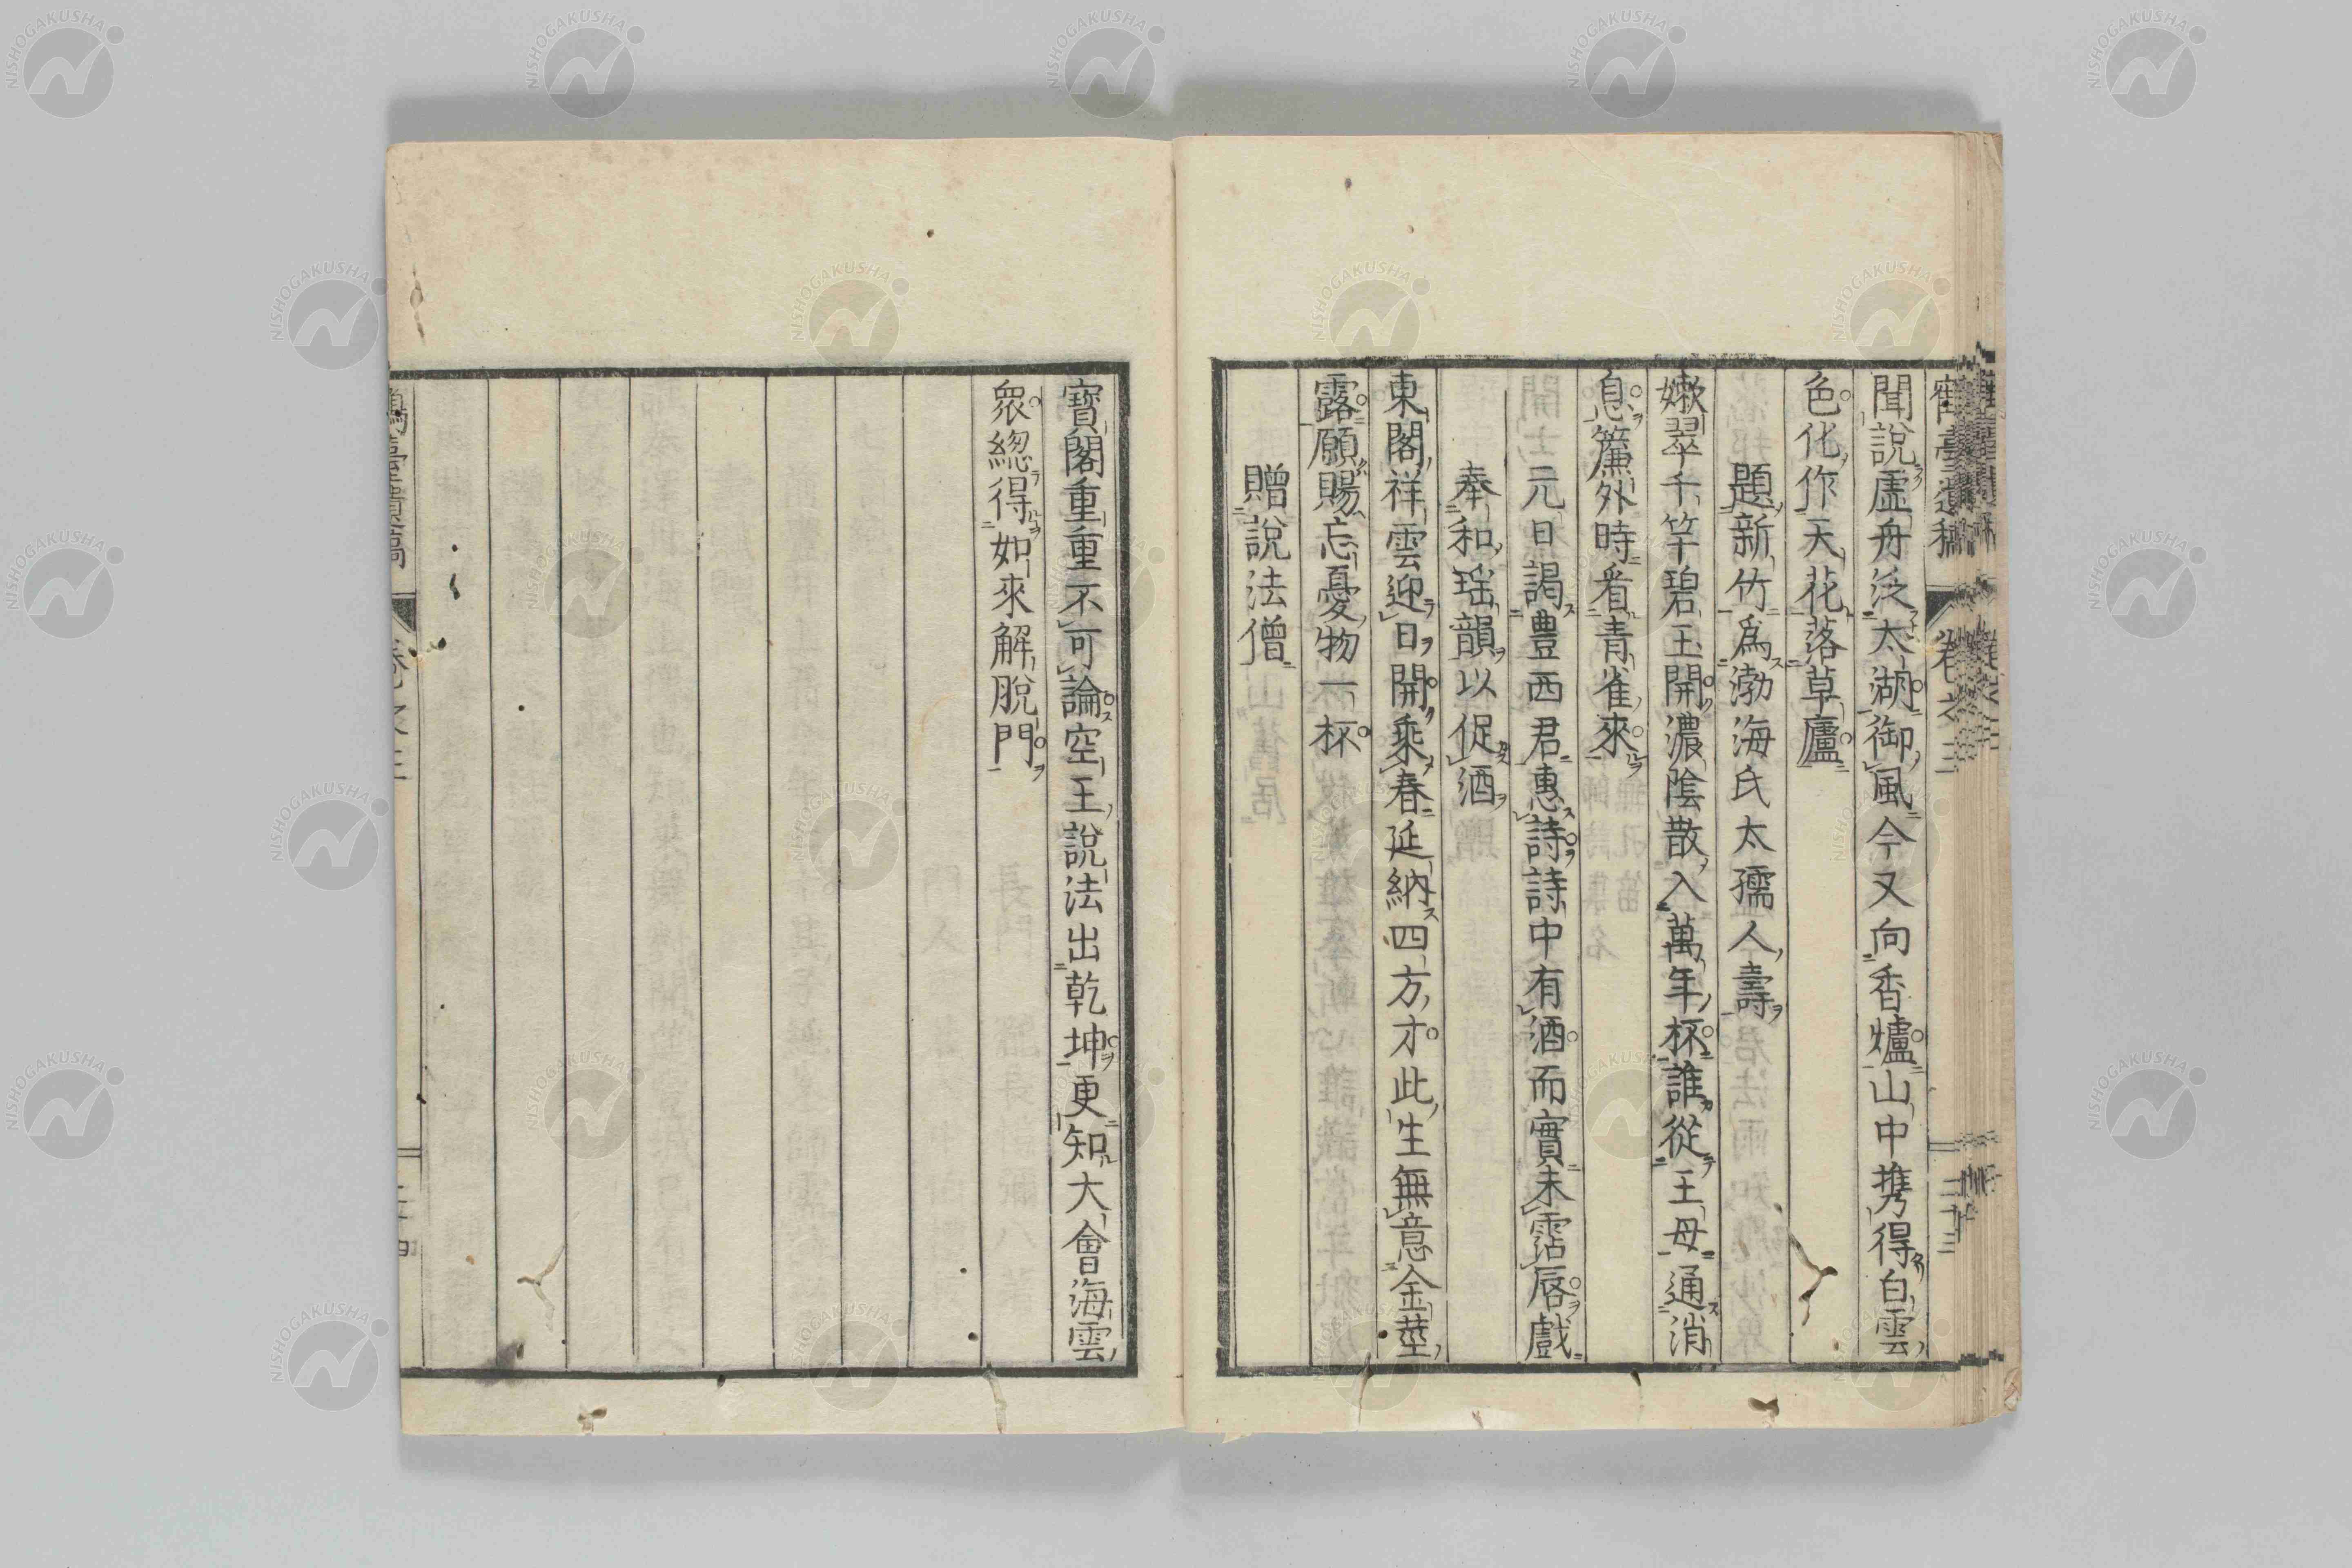 聞說虛舟泛太湖御風今又向香爐山中携得白雲
色化作天花落草廬
題新竹爲渤海氏太孺人壽
嫰翠千竿碧玉開濃陰散入萬年杯誰從王母通消
息簾外時看青雀來
元日謁豊西君惠詩詩中有酒而實未霑唇戲
奉和瑶韻以促酒
東閣祥雲迎日開乘春延納四方才此生無意金莖
露願賜忘憂物一杯
贈說法僧
寶閣重重不可論空王說法出乾坤更知大會海雲
衆總得如來解脫門
NISHOGAKUSHA